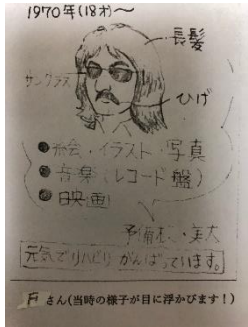 1970年(18才)～
長髪
サングラス
ひげ
●絵・イラスト・写真
●音楽(レコード盤)
●映画
予備校・美大
元気でリハビリがんばっています。
さん(当時の様子が目に浮かびます！)